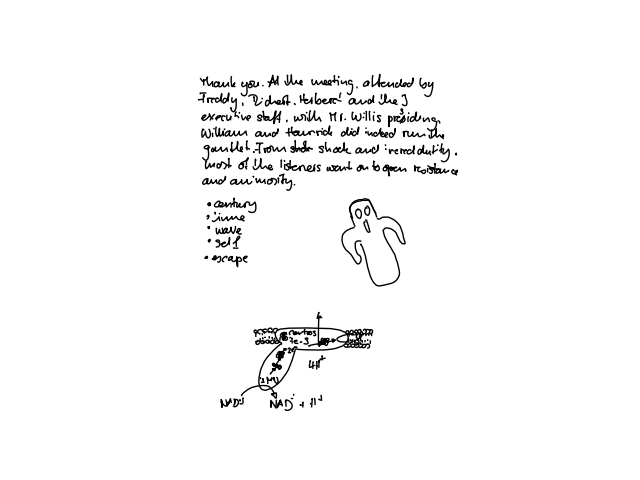 Thank you. At the meeting, attended by
Freddy, Richert, Herbert and the J
executive staff, with Mr. Willis presiding,
William and Hannick did indeed run the
gauntlet. From shock and incredulity,
most of the listeners went on to open resistance
and animosity.
• century
• wave
• self
• escape
4H⁺
NAD⁺ + H⁺